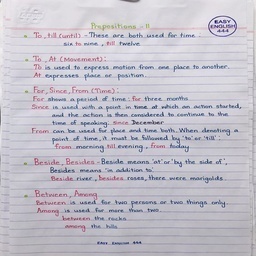 Prepositions - II
EASY
ENGLISH
444
To, till (until) - These are both used for time.
six to nine, till twelve
To, At (Movement):
To is used to express motion from one place to another.
At expresses place or position.
For, Since, From (Time):
For shows a period of time: for three months
Since is used with a point in time at which an action started,
and the action is then considered to continue to the
time of speaking: since December
From can be used for place and time both. When denoting a
point of time, it must be followed by 'to' or 'till'.
from morning till evening, from today
Beside, Besides - Beside means 'at' or 'by the side of',
Besides means 'in addition to'.
Beside river, besides roses, there were marigolds
Between, Among
Between is used for two persons or two things only.
Among is used for more than two.
between the rocks
among the hills
EASY ENGLISH 444